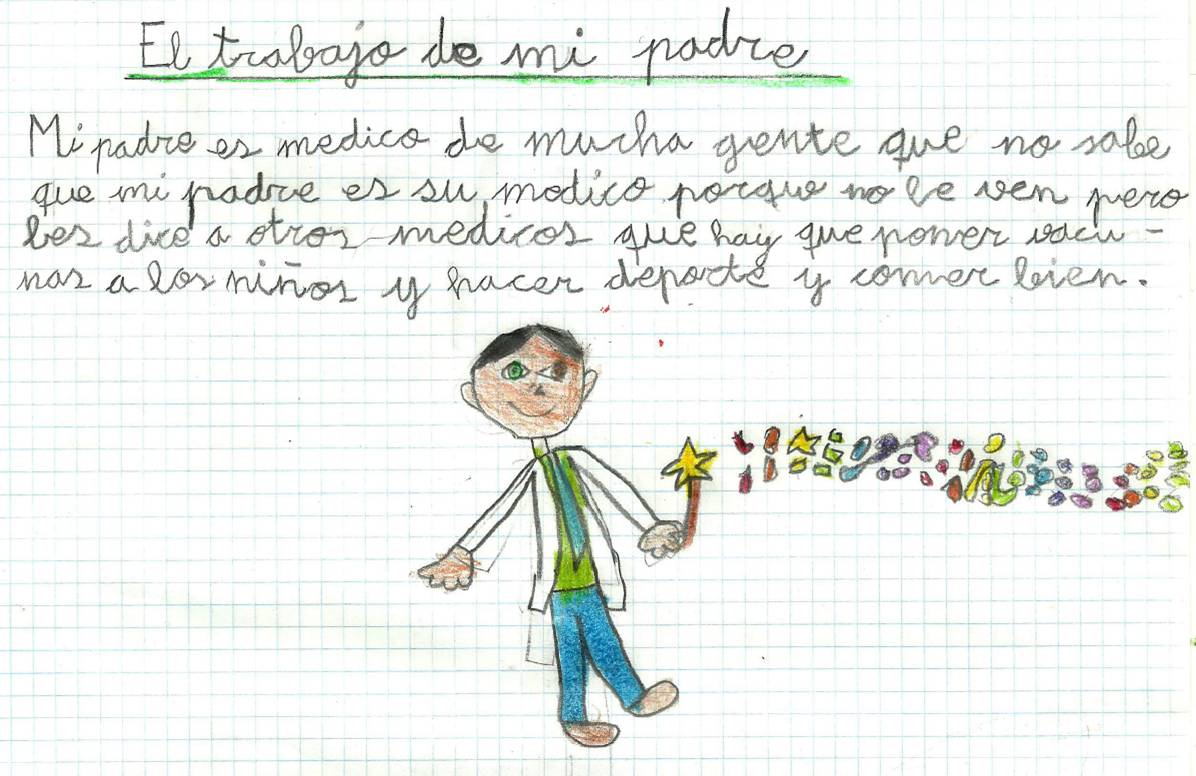 El trabajo de mi padre
Mi padre es medico de mucha gente que no sabe
que mi padre es su medico porque no le ven pero
les dice a otros medicos que hay que poner vacu-
nas a los niños y hacer deporte y comer bien.